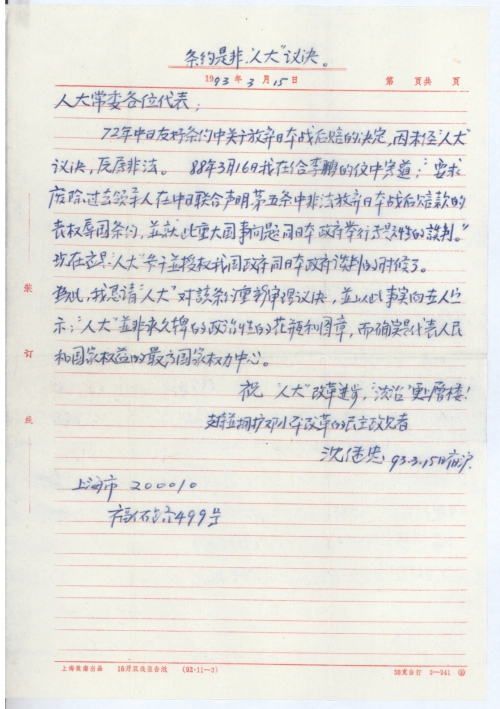 条约是非，"人大"议决。
1993年3月15日 第 页共 页
人大常委各位代表：
72年中日友好条约中关于放弃日本战后赔的决定，因未经"人大"
议决，反属非法。88年3月16日我在给李鹏的信中写道："要求
废除过去领导人在中日联合声明第五条中非法放弃日本战后赔款的
丧权辱国条约，并就此重大国事问题同日本政府举行 性的谈判。"
现在应是"人大"参于并授权我国政府同日本政府谈判的时候了。
为此，我恳请"人大"对该条约重新审理议决，并以此事实向世人
示："人大"并非永久牌的政治性的花瓶和图章，而确实是代表人民
和国家权益的最高国家权力中心。
祝"人大"改革进步，"法治"更上层楼！
支持并拥护邓小平改革的民主政见者
93.3.15日 沪
上海市 200010
路499号
装
订
线
上海 出品 16开双线报告纸 (92·11—3)